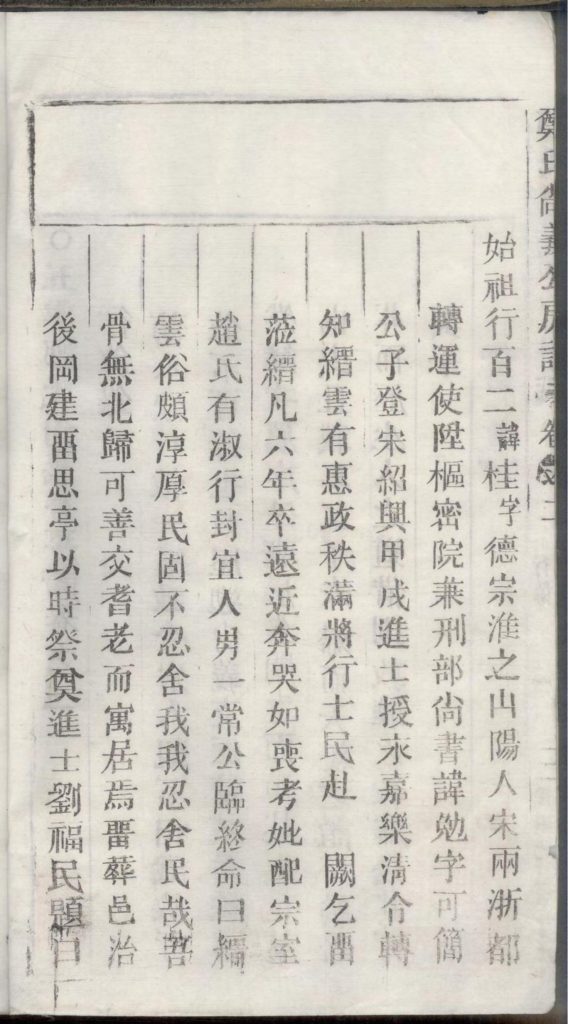 鄭氏尚義公房譜卷之二
始祖行百二諱桂字德宗淮之山陽人宋兩浙都
轉運使陞樞密院兼刑部尚書諱勉字可簡
公子登宋紹興甲戌進士授永嘉樂清令轉
知縉雲有惠政秩滿將行士民赴　闕乞畱
蒞縉凡六年卒遠近奔哭如喪考妣配宗室
趙氏有淑行封宜人男一常公臨終命曰縉
雲俗頗淳厚民固不忍舍我我忍舍民哉吾
骨無北歸可善交耆老而寓居焉畱葬邑治
後岡建畱思亭以時祭奠進士劉福民題曰